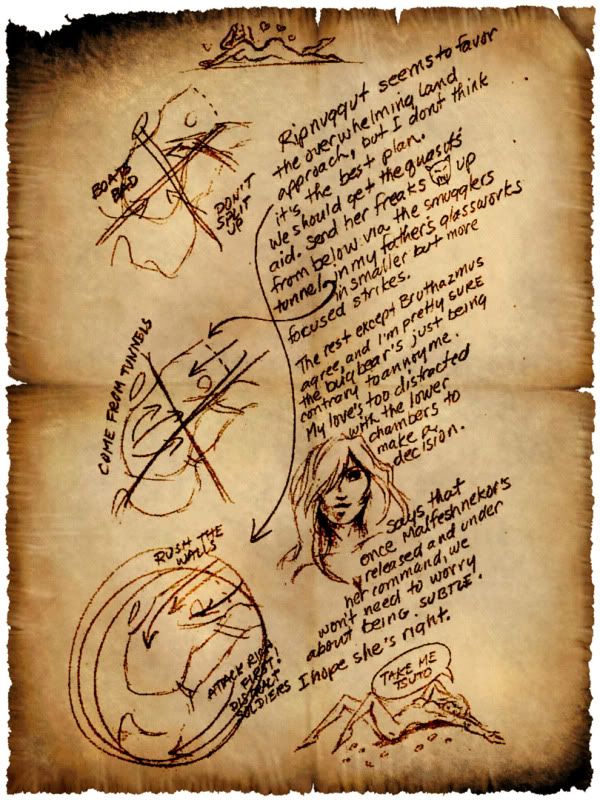 Ripnuggut seems to favor
the overwhelming land
approach, but I don't think
it's the best plan.
We should get the quasit's
aid. Send her freaks up
from below via the smugglers
tunnel in my father's glassworks
in smaller but more
focused strikes.
The rest except Bruthazmus
agree, and I'm pretty SURE
the bugbear's just being
contrary to annoy me.
My love's too distracted
with the lower
chambers to
make a
decision.
says that
once Malfeshnekor's
released and under
her command, we
won't need to worry
about being SUBTLE.
I hope she's right.
BOATS
BAD
DON'T
SPLIT
UP
COME FROM TUNNELS
RUSH THE
WALLS
ATTACK RICH
FIRST!
DISTRACT
SOLDIERS
TAKE ME
TSUTO